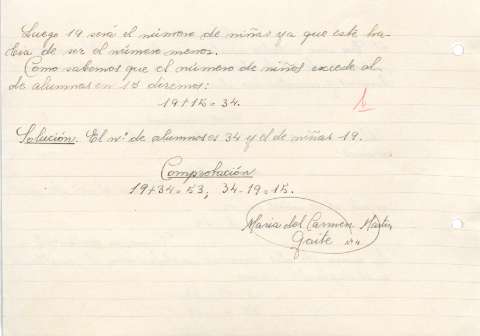 Luego 19 será el número de niñas ya que este ha-
bía de ser el número menor.
Como sabemos que el número de niños excede al
de alumnas en 15 diremos:
19+15=34.
Solución. El nº de alumnos es 34 y el de niñas 19.
Comprobación
19+34=53; 34-19=15.
Maria del Carmen Martín
Gaite